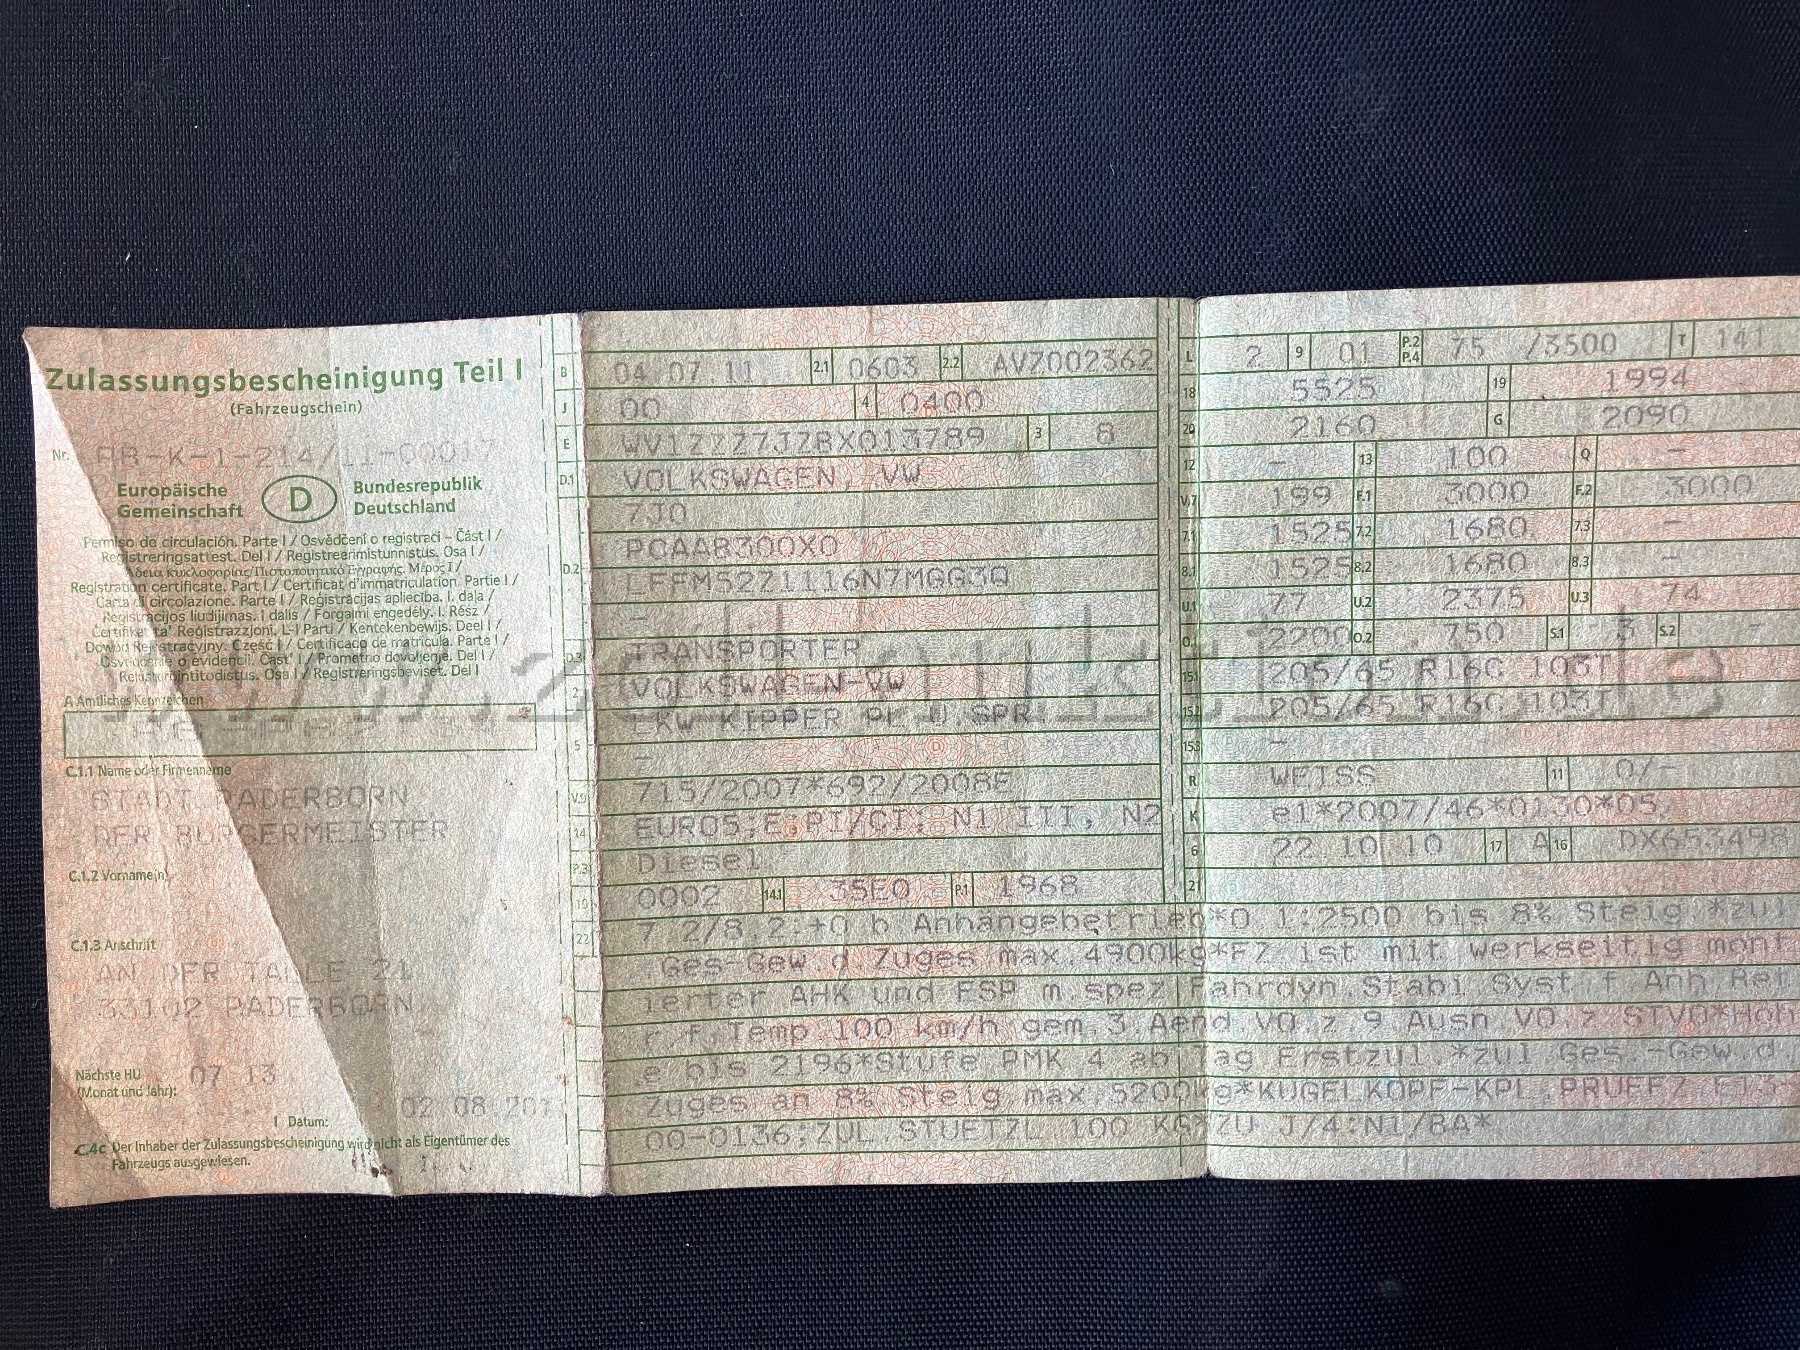 Zulassungsbescheinigung Teil I
(Fahrzeugschein)
Nr. PB-K-1-214/11-00017
Europäische Gemeinschaft
D
Bundesrepublik Deutschland
Permiso de circulación. Parte I / Osvědčení o registraci – Část I /
Registreringsattest. Del I / Registreerimistunnistus. Osa I /
Άδεια κυκλοφορίας/Πιστοποιητικό Εγγραφής. Μέρος I /
Registration certificate. Part I / Certificat d'immatriculation. Partie I /
Carta di circolazione. Parte I / Reģistrācijas apliecība. I. daļa /
Registracijos liudijimas. I dalis / Forgalmi engedély. I. Rész /
Ċertifikat ta' Reġistrazzjoni. L-I Parti / Kentekenbewijs. Deel I /
Dowód Rejestracyjny. Część I / Certificado de matrícula. Parte I /
Osvedčenie o evidencii. Časť I / Prometno dovoljenje. Del I /
Rekisteröintitodistus. Osa I / Registreringsbeviset. Del I
A Amtliches Kennzeichen
C.1.1 Name oder Firmenname
STADT PADERBORN
DER BÜRGERMEISTER
C.1.2 Vorname(n)
C.1.3 Anschrift
AN DER TALLE 21
33102 PADERBORN
Nächste HU
(Monat und Jahr): 07 13
I Datum: 02 08 201
C.4c Der Inhaber der Zulassungsbescheinigung wird nicht als Eigentümer des
Fahrzeugs ausgewiesen.
B 04.07.11 2.1 0603 2.2 AVZ002362
J 00 4 0400
E WV1ZZZ7JZBX013789 3 8
D.1 VOLKSWAGEN, VW
7J0
PCAAB300X0
D.2 LFFM52Z1116N7MGG3Q
–
D.3 TRANSPORTER
2 VOLKSWAGEN-VW
LKW KIPPER PL.U.SPR.
5 –
V.9 715/2007*692/2008E
14 EURO5;E;PI/CI; N1 III, N2
P.3 Diesel
10 0002 14.1 35E0 P.1 1968
L 2 9 01 P.2 P.4 75 /3500 T 141
18 5525 19 1994
20 2160 G 2090
12 – 13 100 Q –
V.7 199 F.1 3000 F.2 3000
7.1 1525 7.2 1680 7.3 –
8.1 1525 8.2 1680 8.3 –
U.1 77 U.2 2375 U.3 74
O.1 2200 O.2 750 S.1 3 S.2 –
15.1 205/65 R16C 103T
15.2 205/65 R16C 103T
15.3 –
R WEISS 11 0/–
K e1*2007/46*0130*05
6 22.10.10 17 A 16 DX653498
21
22 7.2/8.2:+0 b Anhängebetrieb*O.1:2500 bis 8% Steig.*zul
.Ges-Gew.d.Zuges max.4900kg*FZ ist mit werkseitig mont
ierter AHK und ESP m.spez.Fahrdyn.Stabi.Syst.f.Anh.Rei
r.f.Temp.100 km/h gem.3.Aend.VO.z.9.Ausn.VO.z.STVO*Höh
e bis 2196*Stufe PMK 4 ab Tag Erstzul.*zul.Ges.-Gew.d.
Zuges an 8% Steig max.5200kg*KUGELKOPF-KPL.PRUEFZ.E13*
00-0136;ZUL.STUETZL.100 KG*ZU J/4:N1/BA*